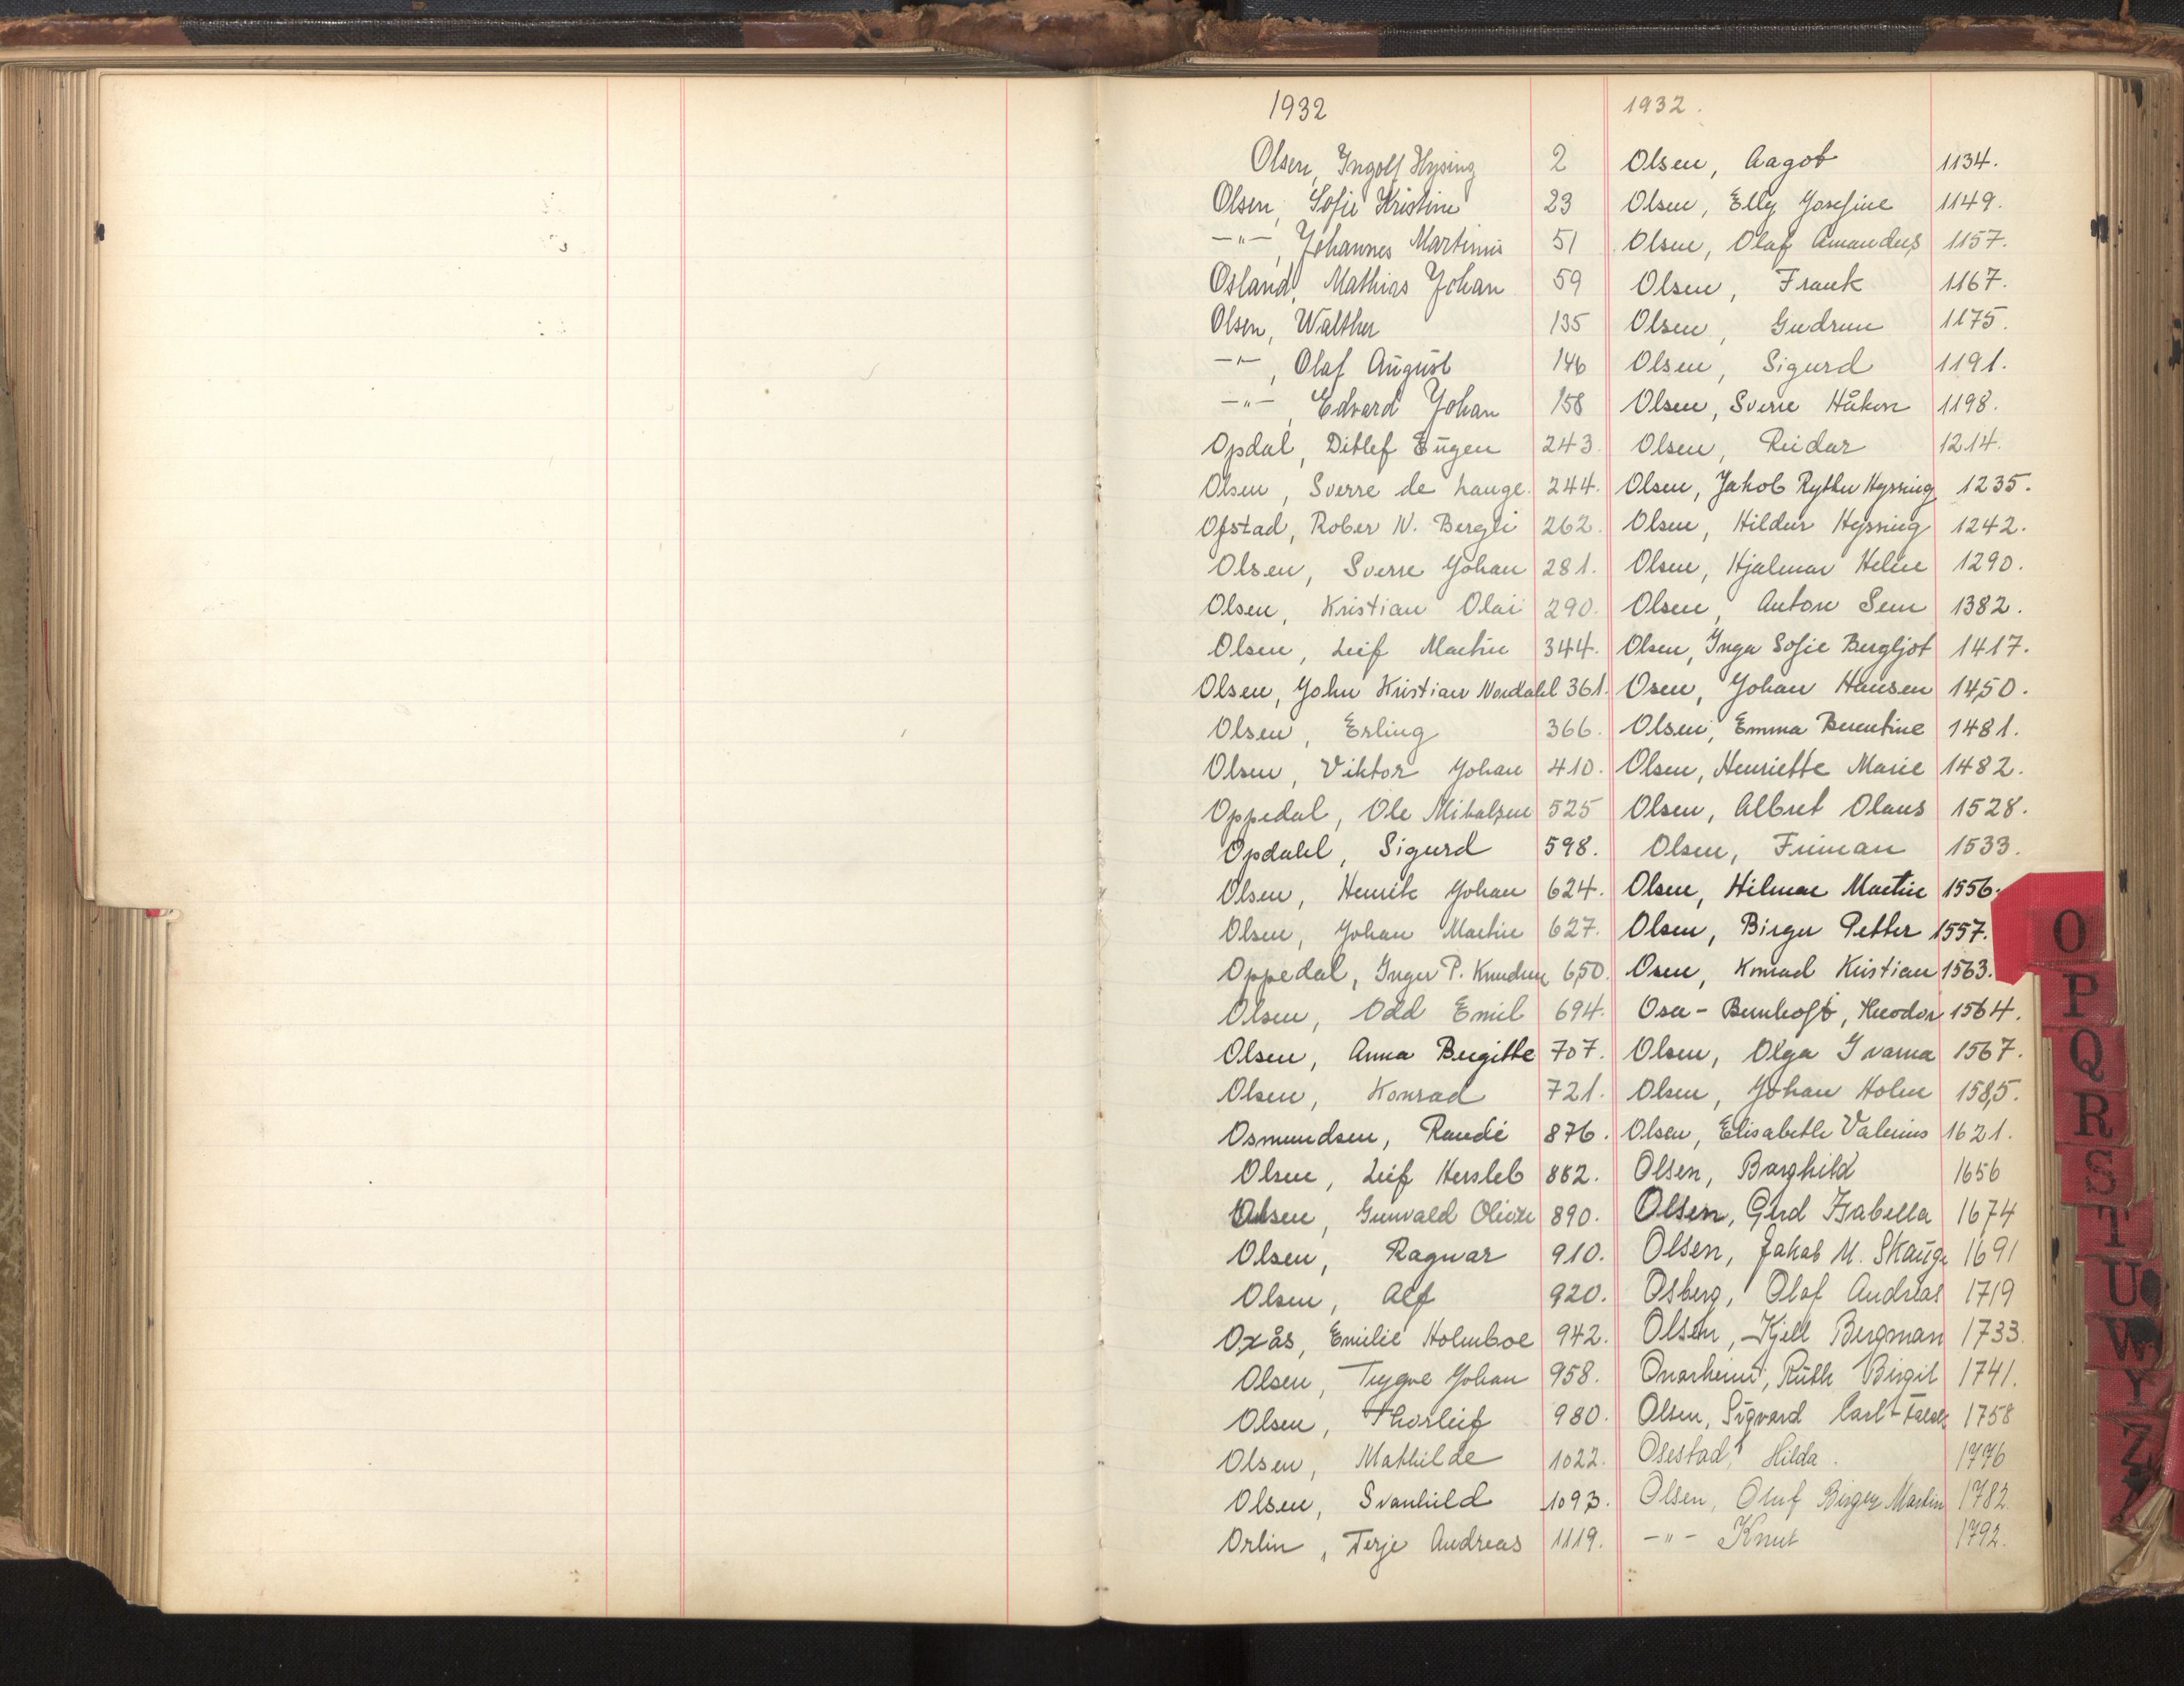 1932
Olsen, Ingolf Hysing 2
Olsen, Sofie Kristine 23
—"—, Johannes Martinus 51
Osland, Mathias Johan 59
Olsen, Walther 135
—"—, Olaf August 146
—"—, Edvard Johan 158
Opdal, Ditlef Eugen 243.
Olsen, Sverre de Lange. 244.
Ofstad, Rober N. Bergli 262.
Olsen, Sverre Johan 281.
Olsen, Kristian Olai 290.
Olsen, Leif Martin 344.
Olsen, John Kristian Nordahl 361.
Olsen, Erling 366.
Olsen, Viktor Johan 410.
Oppedal, Ole Mikalsen 525
Opdahl, Sigurd 598.
Olsen, Henrik Johan 624.
Olsen, Johan Martin 627.
Oppedal, Inger P. Knudsen 650.
Olsen, Odd Emil 694.
Olsen, Anna Bergitte 707.
Olsen, Konrad 721.
Osmundsen, Randi 876.
Olsen, Leif Hersleb 882.
Olsen, Gunvald Oliver 890.
Olsen, Ragnar 910.
Olsen, Alf 920.
Oxås, Emilie Holmboe 942.
Olsen, Trygve Johan 958.
Olsen, Thorleif 980.
Olsen, Mathilde 1022.
Olsen, Svanhild 1093.
Orlin, Terje Andreas 1119.
1932.
Olsen, Aagot 1134.
Olsen, Elly Josefine 1149.
Olsen, Olaf Amandus 1157.
Olsen, Frank 1167.
Olsen, Gudrun 1175.
Olsen, Sigurd 1191.
Olsen, Sverre Håkon 1198.
Olsen, Reidar 1214.
Olsen, Jakob Ryther Hyssing 1235.
Olsen, Hildur Hyssing 1242.
Olsen, Hjalmar Helne 1290.
Olsen, Anton Sem 1382.
Olsen, Inga Sofie Bergljot 1417.
Osen, Johan Hansen 1450.
Olsen, Emma Berentine 1481.
Olsen, Henriette Marie 1482.
Olsen, Albret Olaus 1528.
Olsen, Friman 1533.
Olsen, Hilmar Martin 1556.
Olsen, Birger Petter 1557.
Osen, Konrad Kristian 1563.
Osa - Bernhoft, Theodor 1564.
Olsen, Olga Ivarna 1567.
Olsen, Johan Holm 1585.
Olsen, Elisabeth Valerius 1621.
Olsen, Borghild 1656
Olsen, Gerd Isabella 1674
Olsen, Jakob M. Skauge 1691
Osberg, Olaf Andreas 1719
Olsen, Kjell Bergman 1733.
Onarheim, Ruth Birgit 1741.
Olsen, Sigvard Carl 1758
Osestad, Hilda. 1776
Olsen, Oluf Birger Martin 1782.
—"— Knut 1792.
O
P
Q
R
S
T
U
W
Y
Z